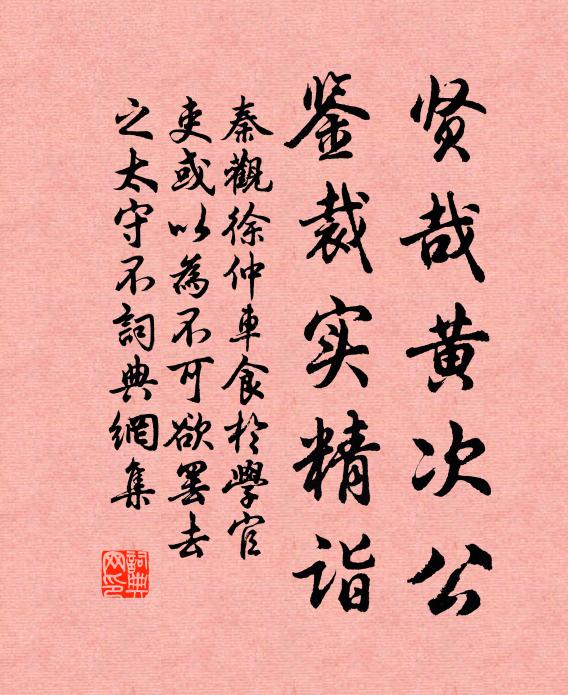 贤哉黄次公
鉴裁实精诣
秦觀徐仲車食於學官
吏或以為不可欲罢去
之太守不詞典網集
詞典网印